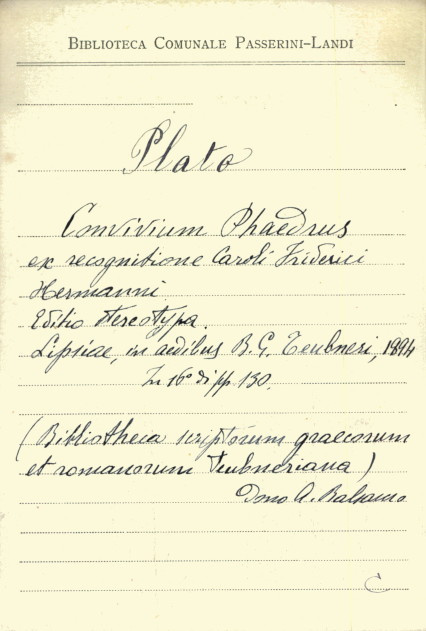 BIBLIOTECA COMUNALE PASSERINI-LANDI
Plato
Convivium Phaedrus
ex recognitione Caroli Friderici
Hermanni
Editio stereotypa.
Lipsiae, in aedibus B. G. Teubneri, 1894
In 16° di pp. 130.
(Bibliotheca scriptorum graecorum
et romanorum Teubneriana)
Dono A. Balsamo
C